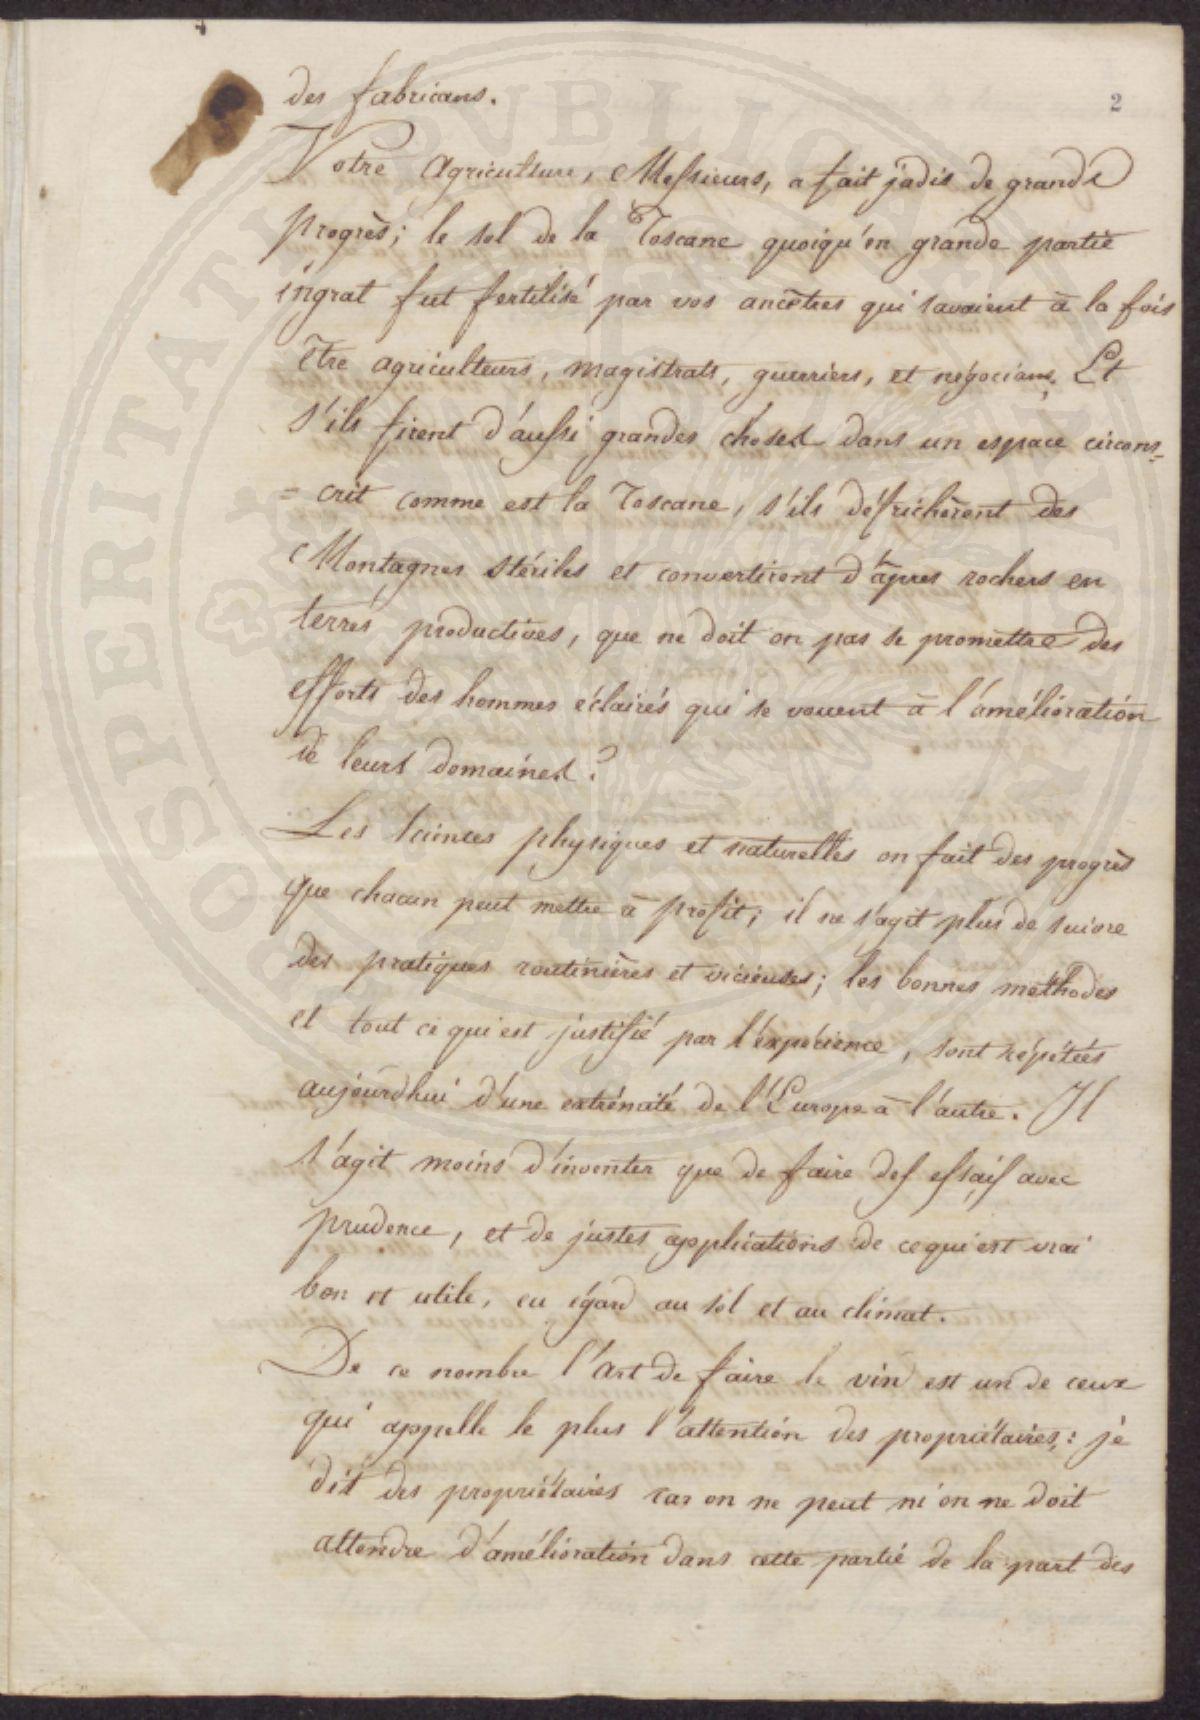 2
des fabricans.
Votre Agriculture, Messieurs, a fait jadis de grands
progrès; le sol de la Toscane quoiqu'en grande partie
ingrat fut fertilisé par vos ancêtres qui savaient à la fois
être agriculteurs, magistrats, guerriers, et négocians. Et
s'ils firent d'aussi grandes choses dans un espace circons=
=crit comme est la Toscane, s'ils défrichèrent des
Montagnes stériles et convertirent d'âpres rochers en
terres productives, que ne doit on pas se promettre des
efforts des hommes éclairés qui se vouent à l'amélioration
de leurs domaines?
Les sciences physiques et naturelles on fait des progrès
que chacun peut mettre à profit; il ne s'agit plus de suivre
des pratiques routinières et vicieuses; les bonnes méthodes
et tout ce qui est justifié par l'expérience, sont répétées
aujourdhui d'une extrémité de l'Europe à l'autre. Il
s'agit moins d'inventer que de faire des essais avec
prudence, et de justes applications de ce qui est vrai
bon et utile, eu égard au sol et au climat.
De ce nombre l'art de faire le vin est un de ceux
qui appelle le plus l'attention des propriétaires: je
dis des propriétaires car on ne peut ni on ne doit
attendre d'amélioration dans cette partie de la part des
PUBLICAE
PROSPERITATI